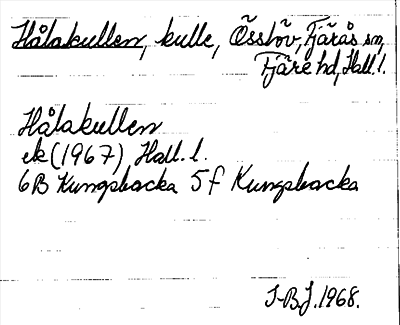 Hålakullen, kulle, Össlöv, Fjärås sn,
Fjäre hd, Hall. l.
Hålakullen
ek (1967) Hall. l.
6B Kungsbacka 5f Kungsbacka
I-BJ. 1968.